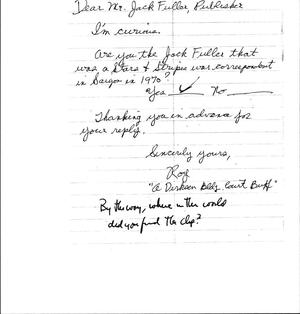 Dear Mr. Jack Fuller, Publisher
I'm curious.
Are you the Jack Fuller that
was a Stars & Stripes war correspondent
in Saigon in 1970?
Yes ✓ No
Thanking you in advance for
your reply.
Sincerely yours,
Roy
"A Dirksen Bldg. Court Buff"
By the way, where in the world
did you find the clip?